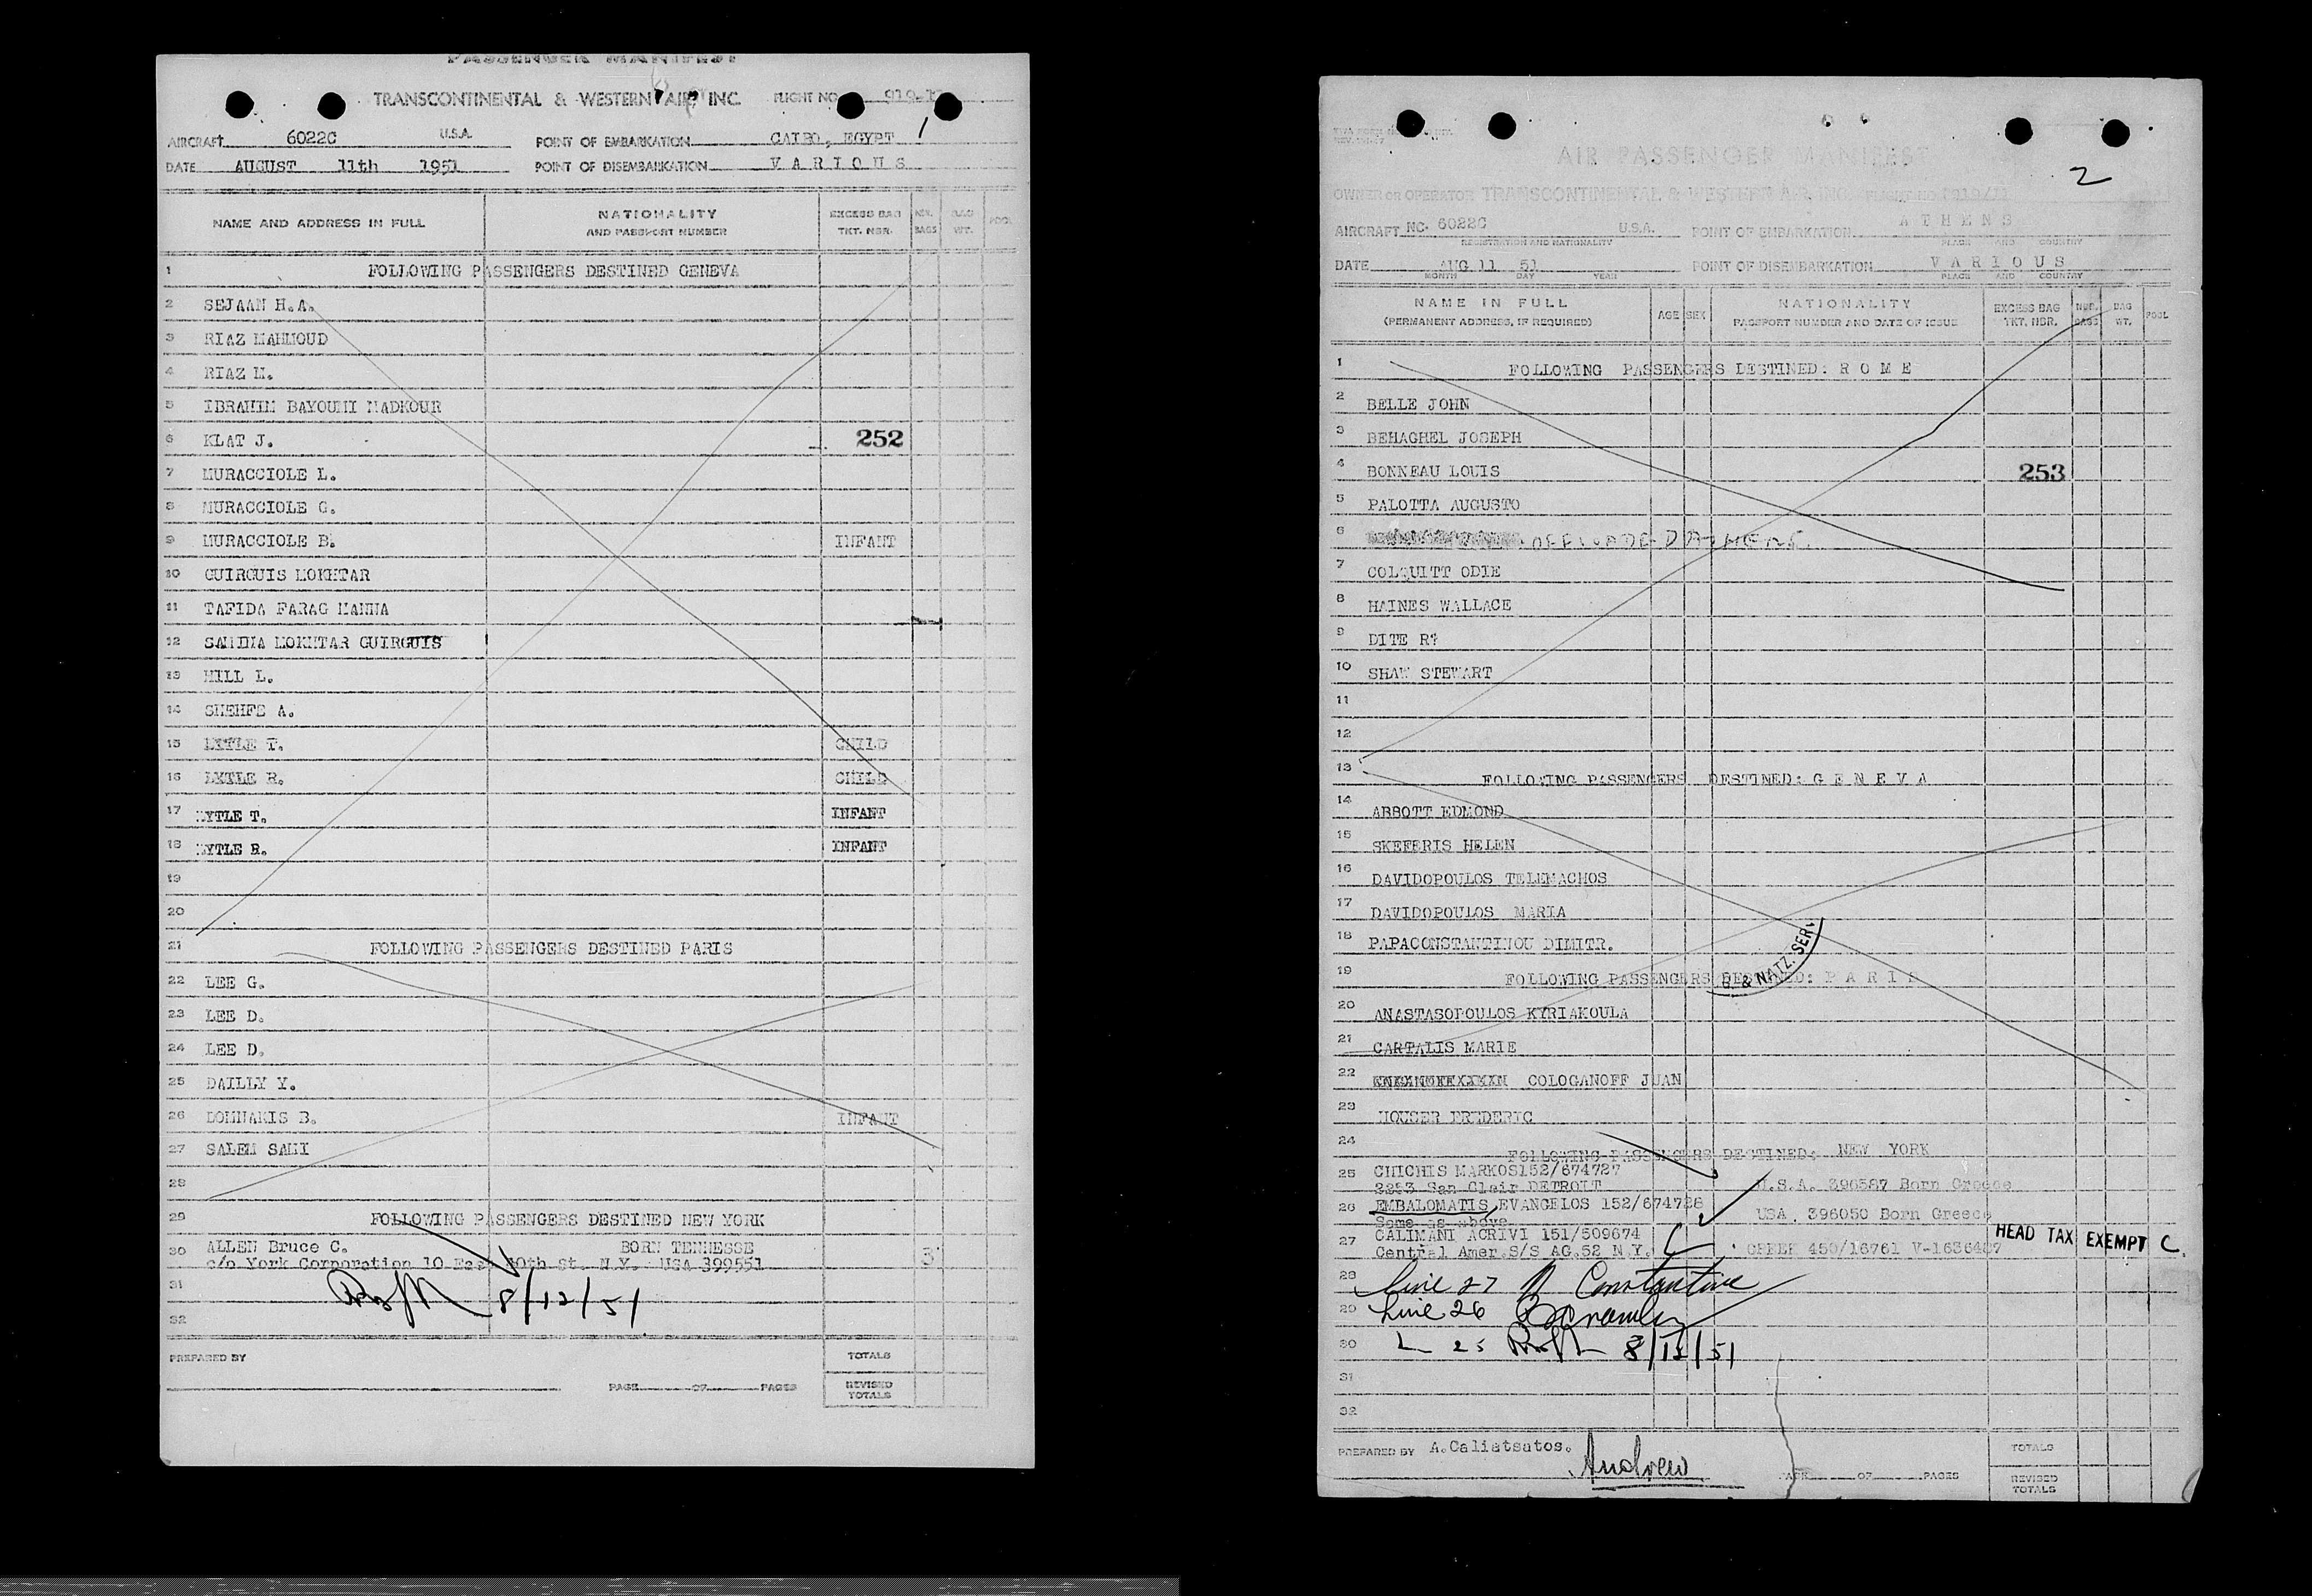 PASSENGER MANIFEST
TRANSCONTINENTAL & WESTERN AIR, INC. FLIGHT NO.
1
AIRCRAFT 6022C U.S.A. POINT OF EMBARKATION CAIRO, EGYPT
DATE AUGUST 11th 1951 POINT OF DISEMBARKATION V A R I O U S
NAME AND ADDRESS IN FULL NATIONALITY AND PASSPORT NUMBER EXCESS BAG TKT. NBR. NBR. BAGS BAG WT. POOL
1 FOLLOWING PASSENGERS DESTINED GENEVA
2 SEJAAN H.A.
3 RIAZ MAHMOUD
4 RIAZ M.
5 IBRAHIM BAYOUMI MADKOUR
6 KLAT J. 252
7 MURACCIOLE L.
8 MURACCIOLE G.
9 MURACCIOLE B. INFANT
10 GUIRGUIS MOKHTAR
11 TAFIDA FARAG HANNA
12 SAMIHA MOKHTAR GUIRGUIS
13 HILL L.
14 SHEHFE A.
15 LYTLE T. CHILD
16 LYTLE R. CHILD
17 LYTLE T. INFANT
18 LYTLE R. INFANT
19
20
21 FOLLOWING PASSENGERS DESTINED PARIS
22 LEE G.
23 LEE D.
24 LEE D.
25 DAILLY Y.
26 DOMNAKIS B. INFANT
27 SALEM SAMI
28
29 FOLLOWING PASSENGERS DESTINED NEW YORK
30 ALLEN Bruce C. BORN TENNESSE
c/o York Corporation 10 East 40th st. N.Y. USA 399551 3
31 8/12/51
32
PREPARED BY TOTALS
PAGE OF PAGES REVISED TOTALS
AIR PASSENGER MANIFEST
2
OWNER OR OPERATOR TRANSCONTINENTAL & WESTERN AIR, INC. FLIGHT NO. 919/11
AIRCRAFT NO. 6022C U.S.A. POINT OF EMBARKATION A T H E N S
REGISTRATION AND NATIONALITY PLACE AND COUNTRY
DATE AUG 11 51 POINT OF DISEMBARKATION V A R I O U S
MONTH DAY YEAR PLACE AND COUNTRY
NAME IN FULL (PERMANENT ADDRESS, IF REQUIRED) AGE SEX NATIONALITY PASSPORT NUMBER AND DATE OF ISSUE EXCESS BAG TKT. NBR. NBR. BAGS BAG WT. POOL
1 FOLLOWING PASSENGERS DESTINED: R O M E
2 BELLE JOHN
3 BEHAGHEL JOSEPH
4 BONNEAU LOUIS 253
5 PALOTTA AUGUSTO
6
7 COLQUITT ODIE
8 HAINES WALLACE
9 DITE R?
10 SHAW STEWART
11
12
13 FOLLOWING PASSENGERS DESTINED: G E N E V A
14 ABBOTT EDMOND
15 SKEFERIS HELEN
16 DAVIDOPOULOS TELEMACHOS
17 DAVIDOPOULOS MARIA
18 PAPACONSTANTINOU DIMITR.
19 FOLLOWING PASSENGERS DESTINED: P A R I S
& NATZ. SERV
20 ANASTASOPOULOS KYRIAKOULA
21 CARTALIS MARIE
22 COLOGANOFF JUAN
23 HOUSER FREDERIC
24 FOLLOWING PASSENGERS DESTINED: NEW YORK
25 CHICHIS MARKOS 152/674727
2253 San Clair DETROIT U.S.A. 390587 Born Greece
26 EMBALOMATIS EVANGELOS 152/674728
Same as above USA 396050 Born Greece
27 CALIMANI ACRIVI 151/509674 HEAD TAX EXEMPT C.
Central Amer.S/S AG.52 N.Y. GREEK 450/16761 V-1636487
28 Line 27 Constantine
29 Line 26
30 L 25 8/12/51
31
32
PREPARED BY A.Caliatsatos. Andrew TOTALS
PAGE OF PAGES REVISED TOTALS